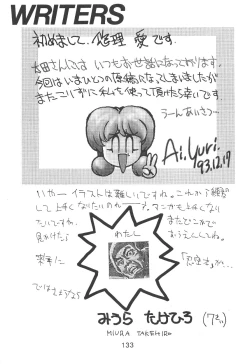 WRITERS
初めまして、悠理 愛です。
太田さんには いつもお世話になっております。
今回はいまひとつの原稿になってしまいましたが
またこりずに私を使って頂けたら幸いです。
うーんあいさつ…
Ai. Yuri.
'93.12.19
いやー イラストは難しいですね。これから練習
して上手くなりたいのね
たいですね。
またどこかで
見かけたら
おうえんしてね。
わたし
ではさようなら
みうら たけひろ
MIURA TAKEHIRO
133